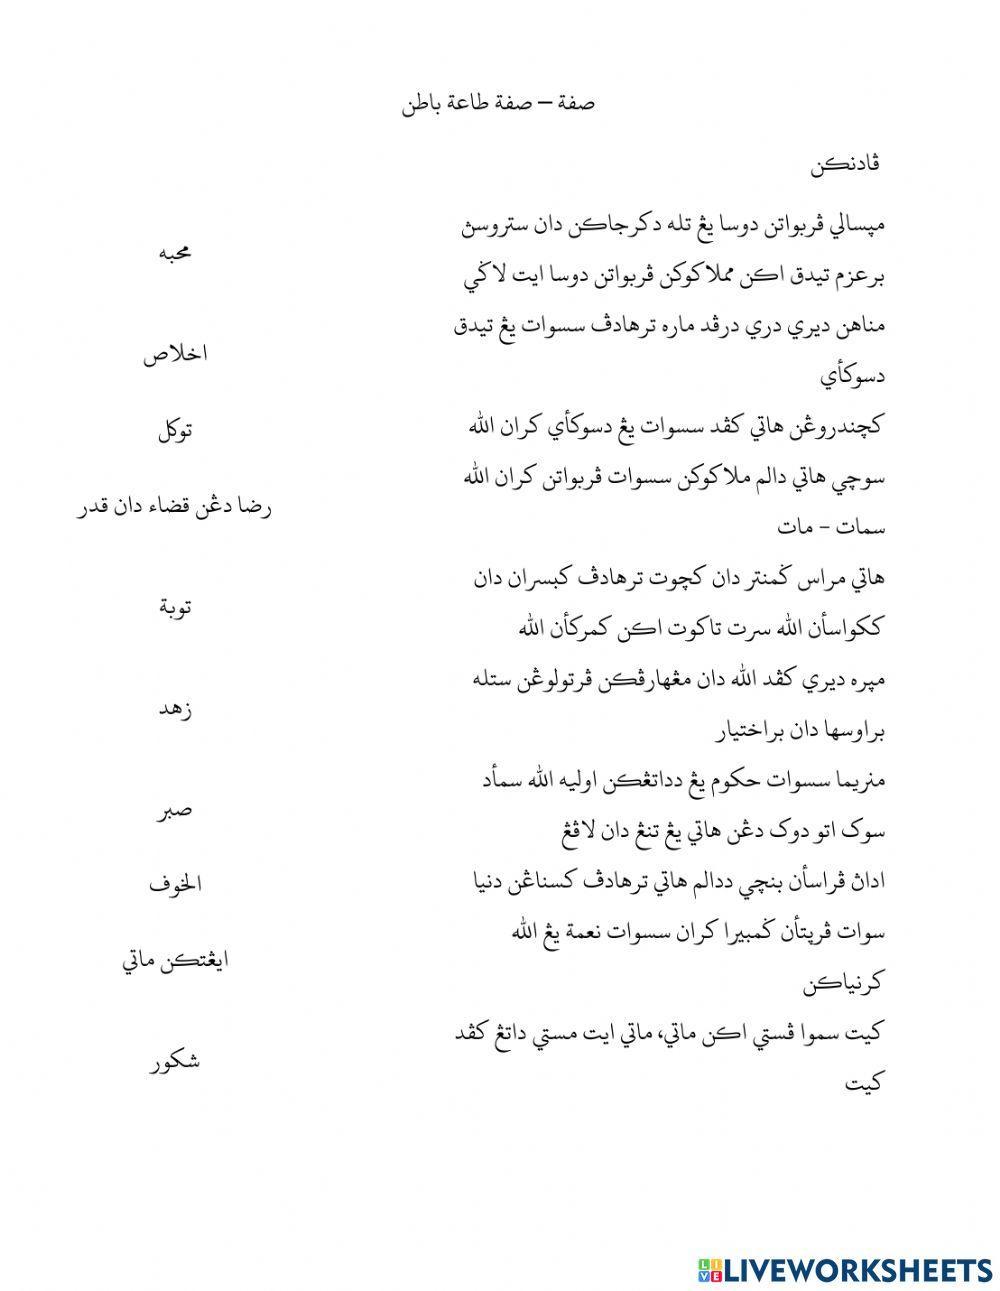 صفة – صفة طاعة باطن
ڤادنکن
مڽسالي ڤربواتن دوسا يڠ تله دکرجاکن دان ستروسڽ
برعزم تيدق اکن مملاکوکن ڤربواتن دوسا ايت لاݢي
محبه
مناهن ديري دري درڤد ماره ترهادڤ سسوات يڠ تيدق
دسوکأي
اخلاص
کچندروڠن هاتي کڤد سسوات يڠ دسوکأي کران الله
توكل
سوچي هاتي دالم ملاکوکن سسوات ڤربواتن کران الله
سمات – مات
رضا دڠن قضاء دان قدر
هاتي مراس ݢمنتر دان کچوت ترهادڤ کبسران دان
ککواسأن الله سرت تاکوت اکن کمرکأن الله
توبة
مڽره ديري کڤد الله دان مڠهارڤکن ڤرتولوڠن ستله
براوسها دان براختيار
زهد
منريما سسوات حکوم يڠ دداتڠکن اوليه الله سمأد
سوک اتو دوک دڠن هاتي يڠ تنڠ دان لاڤڠ
صبر
اداڽ ڤراسأن بنچي ددالم هاتي ترهادڤ کسناڠن دنيا
الخوف
سوات ڤرڽتأن ݢمبيرا کران سسوات نعمة يڠ الله
کرنياکن
ايڠتکن ماتي
کيت سموا ڤستي اکن ماتي، ماتي ايت مستي داتڠ کڤد
کيت
شكور
LIVEWORKSHEETS